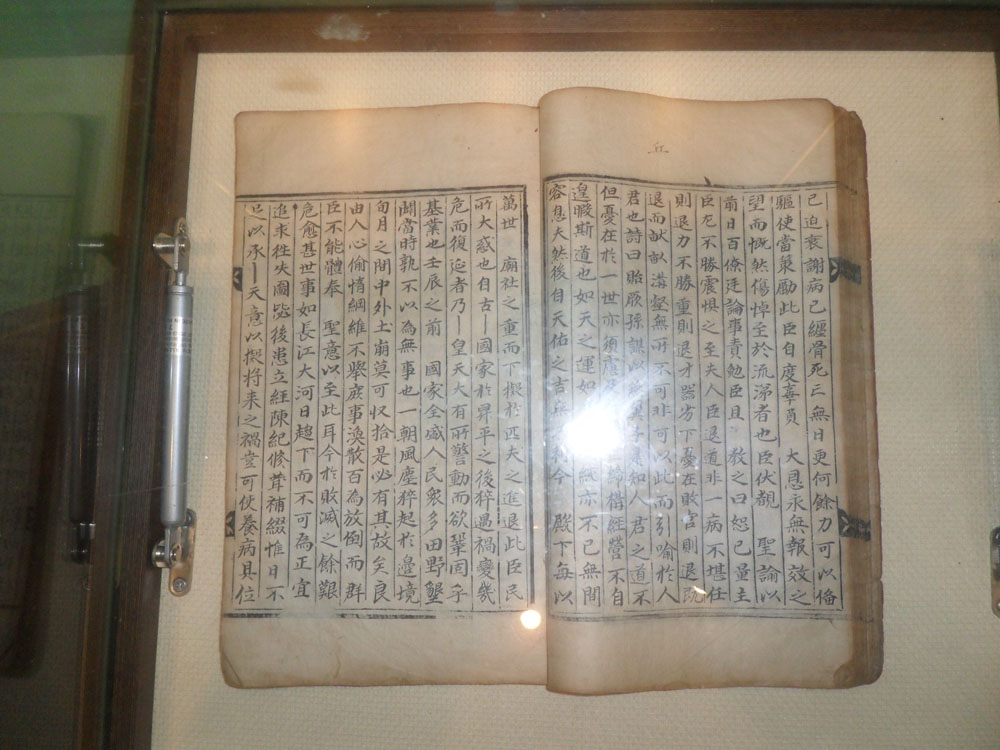 丘
已迫衰謝病已纏骨死亡無日更何餘力可以備
驅使當策勵此臣自度辜負 大恩永無報效之
望而慨然傷悼至於流涕者也臣伏覩 聖諭以
前日百僚廷論事責勉臣且教之曰恕己量主
臣尤不勝震惧之至夫人臣退道非一病不堪任
則退力不勝重則退才器劣下憂在敗官則退
退而畎畝溝壑無所不可非可以此而引喻於人
君也詩曰貽厥孫謀以燕翼子是知人君之道不
但憂在於一世亦須 締構經營不自
遑暇斯道也如天之運如 紙亦不已無間
容息夫然後自天佑之吉無 今 殿下每以
萬世 廟社之重而下擬於匹夫之進退此臣民
所大惑也自古 國家於昇平之後猝遇禍變幾
危而復延者乃 皇天大有所警動而欲鞏固乎
基業也壬辰之前 國家全盛人民衆多田野墾
闢當時孰不以為無事也一朝風塵猝起於邊境
旬月之間中外土崩莫可收拾是必有其故矣良
由人心偷惰綱維不擧庶事渙散百為放倒而群
臣不能體奉 聖意以至此耳今於敗滅之餘艱
危愈甚世事如長江大河日趨下而不可為正宜
追求徃失圖毖後患立經陳紀修葺補綴惟日不
已以承 天意以擬將来之禍豈可使養病具位